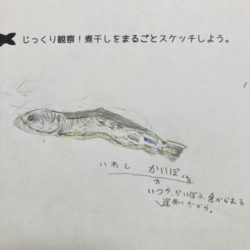 じっくり観察！煮干しをまるごとスケッチしよう。
いわし　かいぼ
いつか、かいぼう、食べられる
運めいだから。